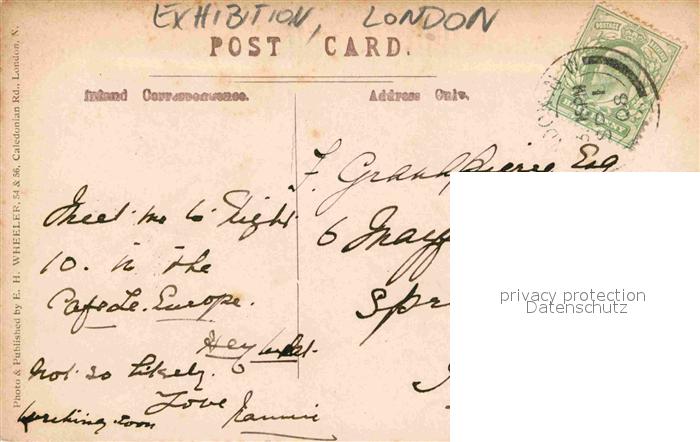 EXHIBITION, LONDON
POST CARD.
Inland Correspondence.
Address Only.
Photo & Published by E. H. WHEELER, 54 & 56, Caledonian Rd., London, N.
Meet me to Night
10. in the
Cafe de. Europe.
Hey
Not so likely.
Love
Writing soon
F. Grandpierre Esq
6
Spr
privacy protection
Datenschutz
POSTAGE
HALFPENNY
SP
08